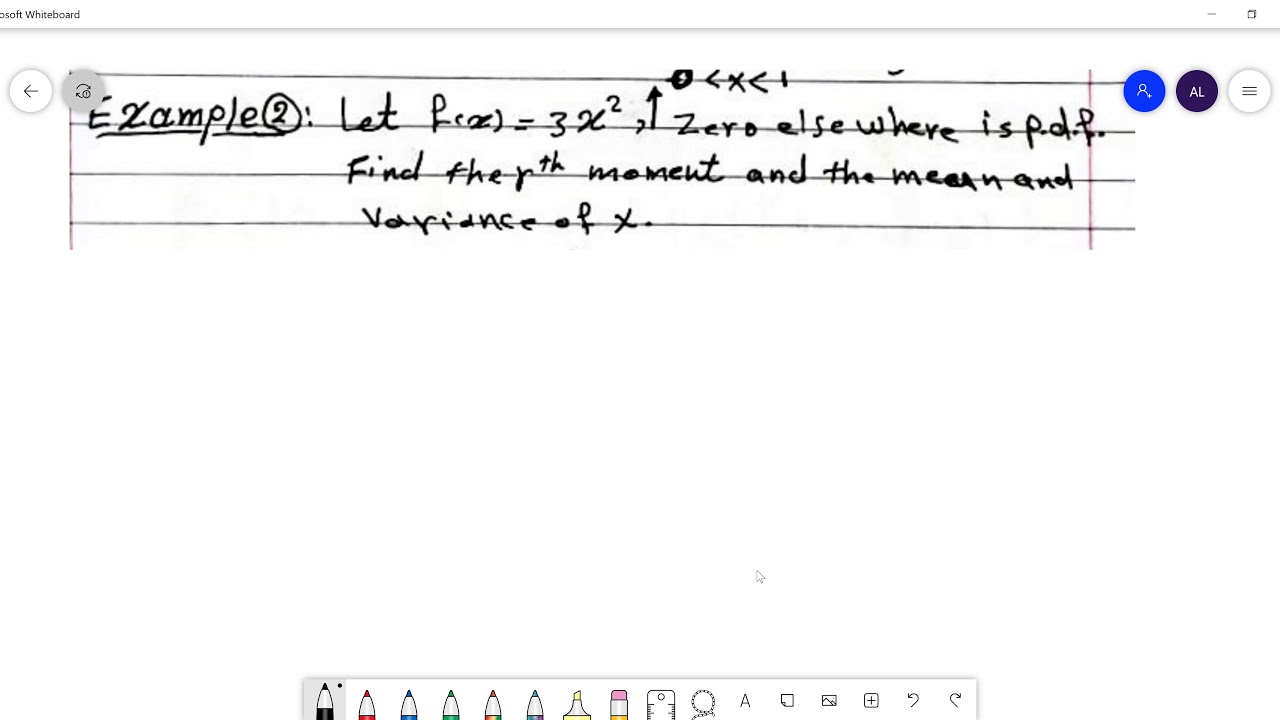 osoft Whiteboard
0 < x < 1
AL
Example②: Let f(x) = 3x², ↑ Zero elsewhere is p.d.f.
Find the rᵗʰ moment and the mean and
Variance of x.
A